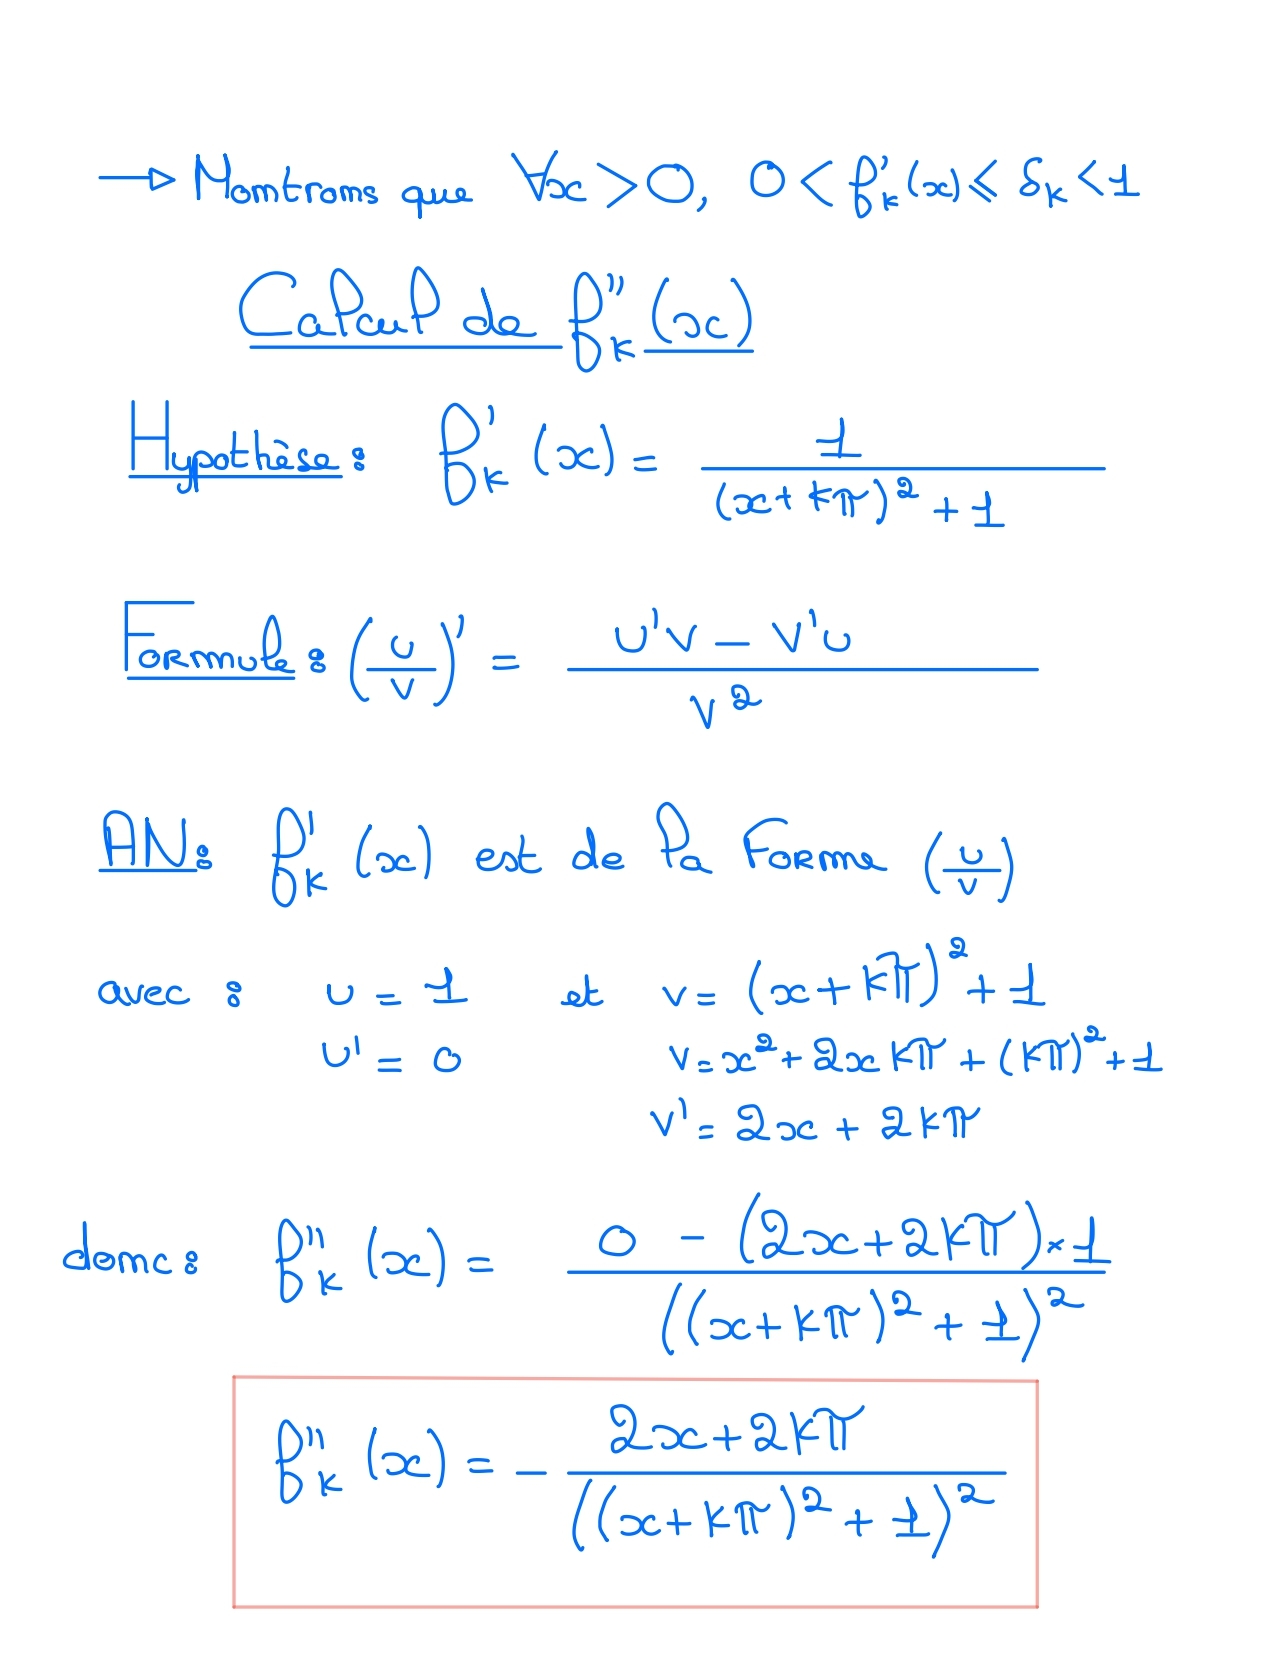 → Montrons que ∀x > 0, 0 < f'ₖ(x) ≤ δₖ < 1
Calcul de f''ₖ(x)
Hypothèse : f'ₖ(x) = 1 / ((x + kπ)² + 1)
Formule : (u/v)' = (u'v − v'u) / v²
AN : f'ₖ(x) est de la forme (u/v)
avec : u = 1 et v = (x + kπ)² + 1
u' = 0 v = x² + 2xkπ + (kπ)² + 1
v' = 2x + 2kπ
donc : f''ₖ(x) = (0 − (2x + 2kπ) × 1) / ((x + kπ)² + 1)²
f''ₖ(x) = − (2x + 2kπ) / ((x + kπ)² + 1)²